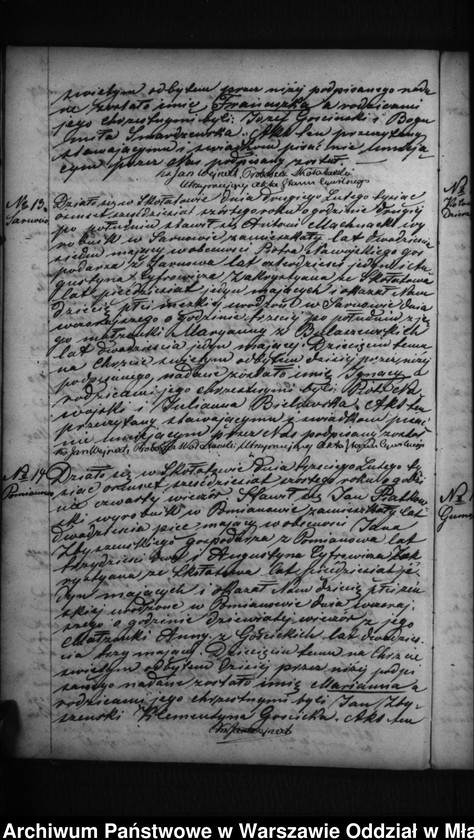 świętym odbytym zaraz niżej podpisanego nada
ne zostało imię Franciszka a rodzicami
jego chrzestnymi byli: Józef Gościnski i Bogu
miła Smardzewska. Akt ten przeczytany
stawającym i świadkom pisać nie umieją
cym przez Nas podpisany został.
Ks Jan Wejnat, Proboszcz Skołatowski
Utrzymujący akta Stanu Cywilnego
No 13.
Sarnowo
Działo się w Skołatowie dnia drugiego Lutego tysiąc
osiemset sześćdziesiąt szóstego roku o godzinie drugiej
po południu stawił się Antoni Machnacki wy
robnik w Sarnowie zamieszkały lat dwadzieścia
siedm mający w obecności Piotra Nawojskiego gos
podarza z Sarnowa lat czterdzieści jeden i Au
gustyna Cytrowicza Zakrystyana ze Skołatowa
lat pięćdziesiąt jeden mających i okazał Nam
dziecię płci męskiej urodzone w Sarnowie dnia
wczorajszego o godzinie trzeciej po południu z je
go małżonki Maryanny z Bylaszewskich
lat dwadzieścia jeden mającej. Dziecięciu temu
na Chrzcie świętym odbytym dzisiaj przez niżej
podpisanego, nadane zostało imię Ignacy a
rodzicami jego chrzestnymi byli Piotr Na
wojski i Julianna Bielawska. Akt ten
przeczytany stawającemu i świadkom pisać
nie umiejącym przez Nas podpisany został
Ks Jan Wejnat, Proboszcz Skołatowski Utrzymujący akta Stanu Cywilnego
No 14
Pomianowo
Działo się w Skołatowie dnia trzeciego Lutego ty
siąc osiemset sześćdziesiąt szóstego roku o godzi
nie czwartej wieczór. Stawił się Jan
wyrobnik w Pomianowie zamieszkały lat
dwadzieścia pięć mający w obecności Jana
Zbyszewskiego gospodarza z Pomianowa lat
trzydzieści dwa i Augustyna Cytrowicza Zak
rystyana ze Skołatowa lat pięćdziesiąt je
den mających i okazał Nam dziecię płci żeń
skiej urodzone w Pomianowie dnia wczoraj
szego o godzinie dziewiątej wieczór z jego
Małżonki Anny z Gościckich lat dwadzieś
cia trzy mającej. Dziecięciu temu na Chrzcie
świętym odbytym dzisiaj przez niżej podpi
sanego nadane zostało imię Marianna a
rodzicami jego chrzestnymi byli Jan Zby
szewski i Klementyna Gościcka. Akt ten
No
No
Archiwum Państwowe w Warszawie Oddział w Mła